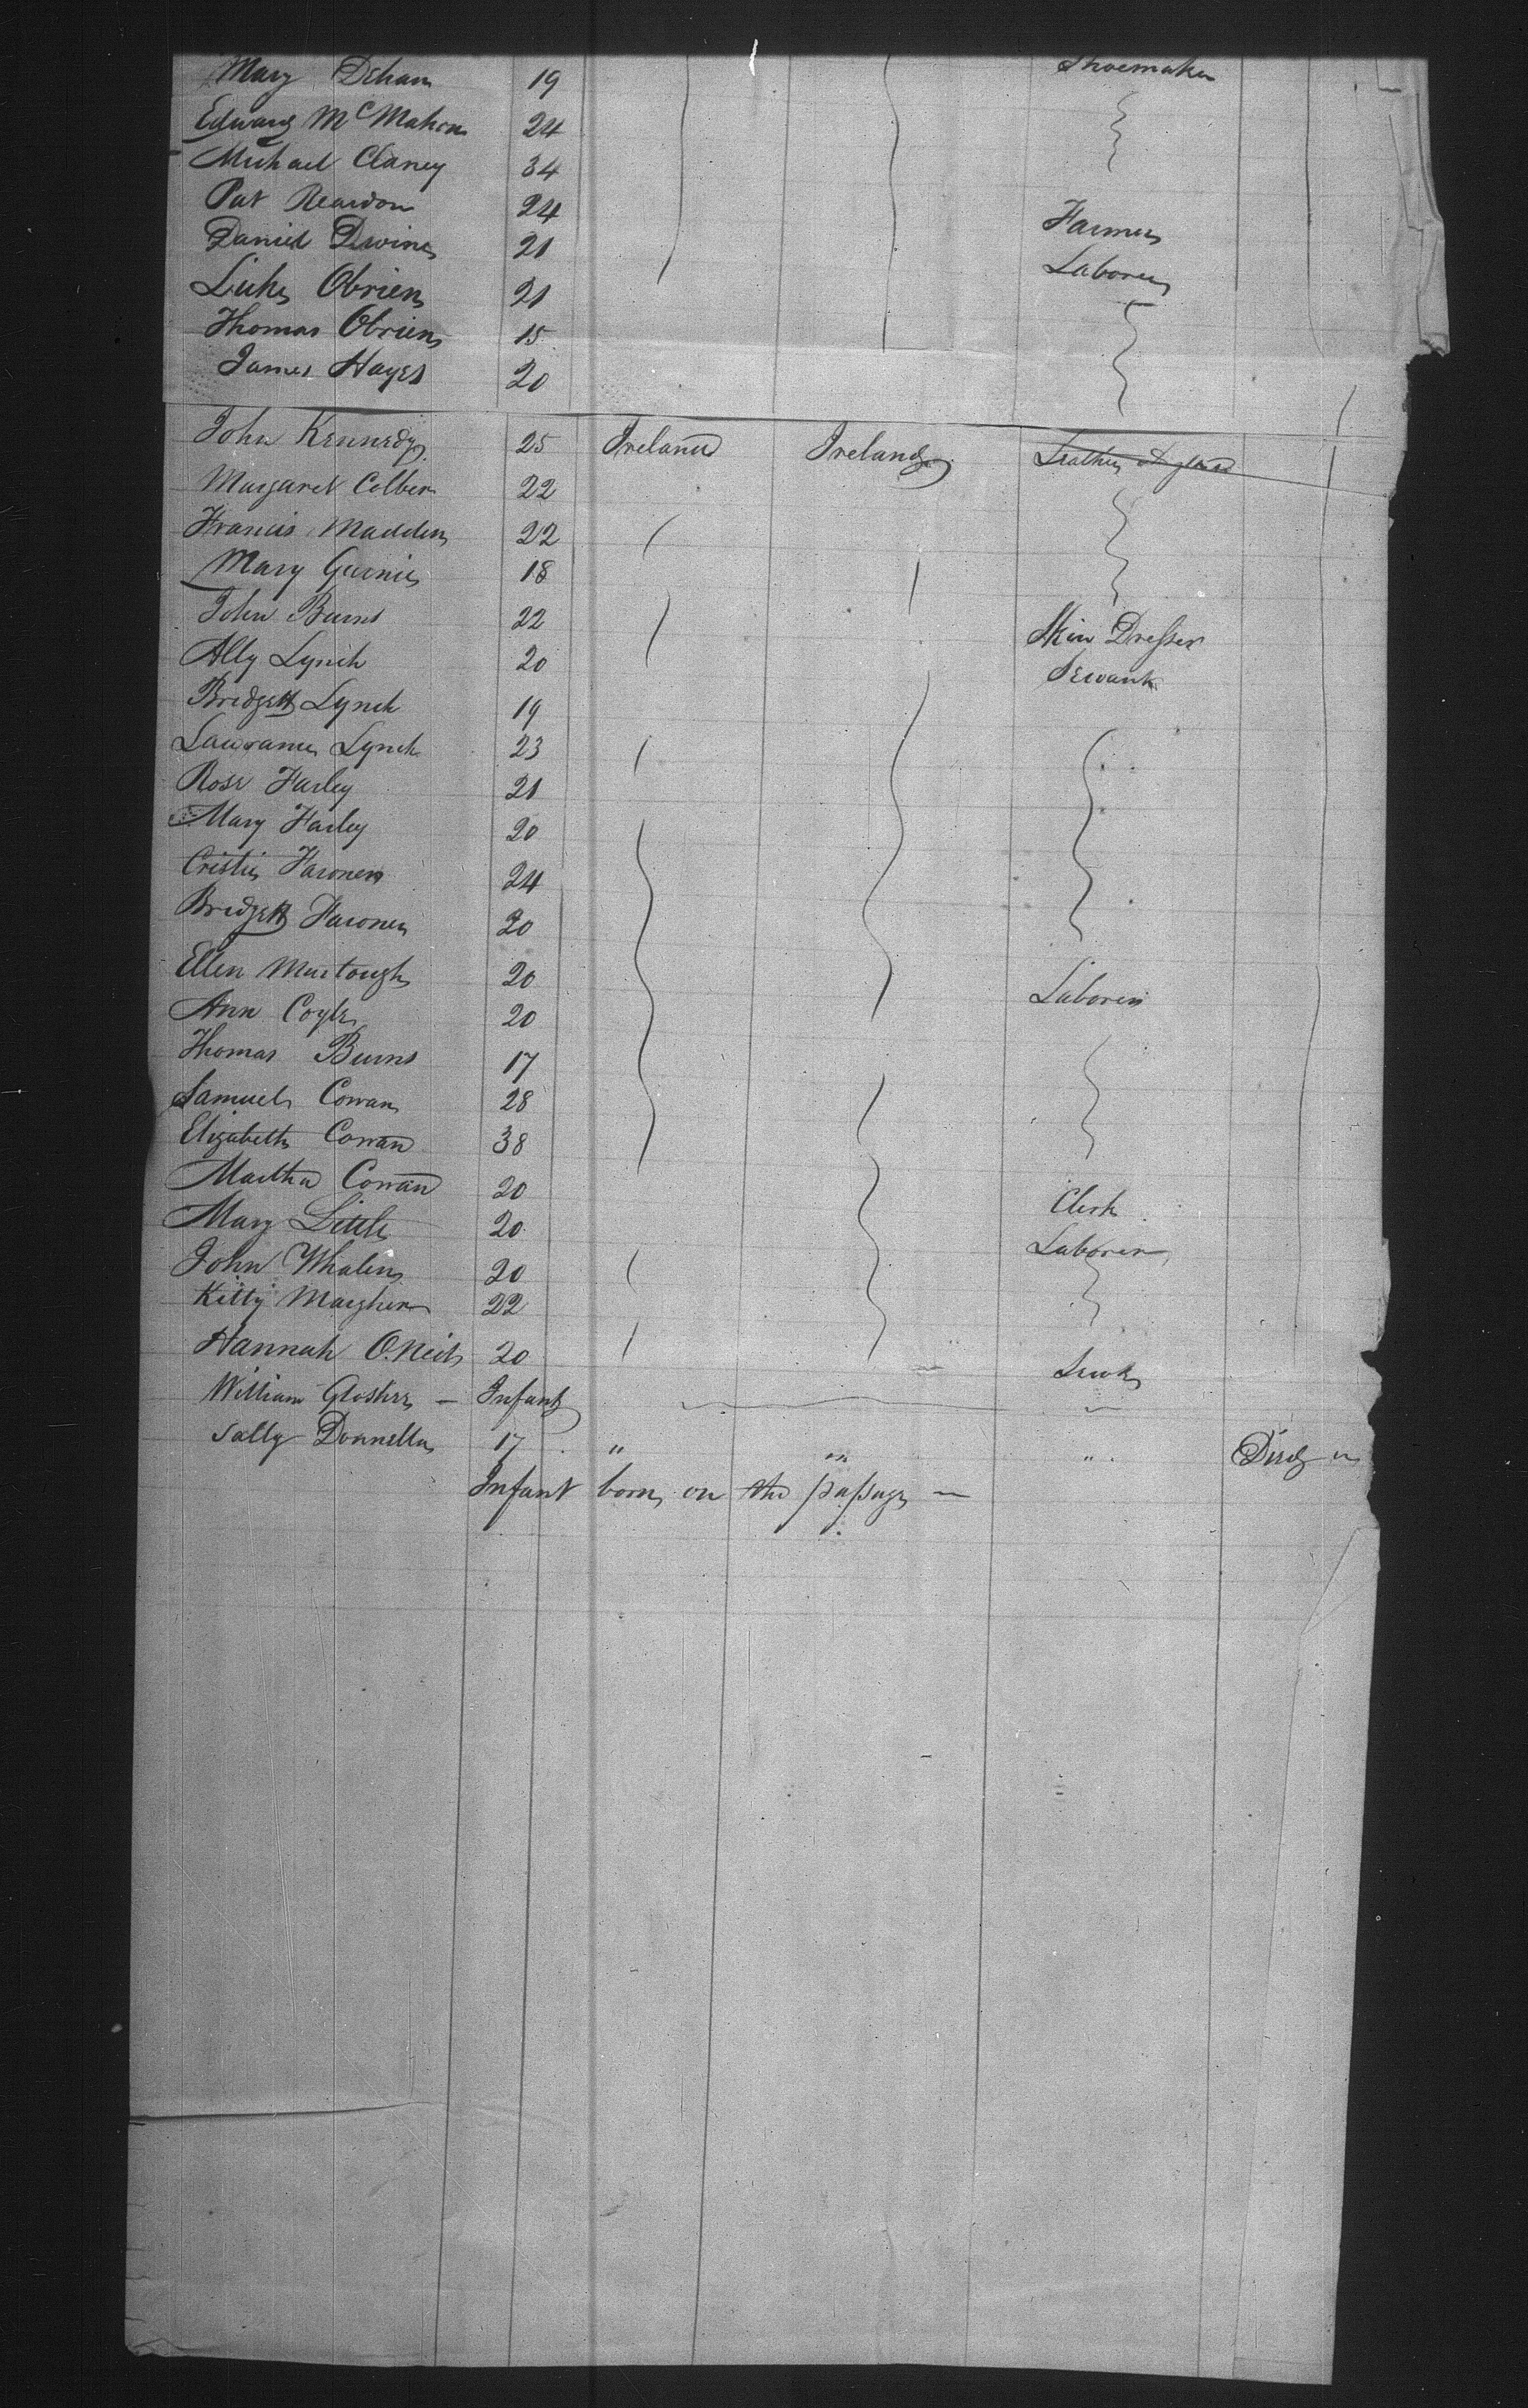 Mary Dehan 19 Shoemaker
Edward McMahon 24
Michael Claney 34
Pat Reardon 24
Daniel Dwine 21 Farmer
Luke Obrien 21 Laborer
Thomas Obrien 15
James Hayes 20
John Kennedy 25 Ireland Ireland
Margaret Colben 22
Francis Madden 22
Mary Gurnie 18
John Burns 22 Skin Dresser
Ally Lynch 20 Servant
Bridgett Lynch 19
Lawrance Lynch 23
Rose Farley 21
Mary Farley 20
Cristie Faronen 24
Bridgett Faronen 20
Ellen Murtough 20 Laborer
Ann Coyle 20
Thomas Burns 17
Samuel Cowan 28
Elizabeth Cowan 38
Martha Cowan 20 Clerk
Mary Little 20 Laborer
John Whalen 20
Kitty Maigher 22
Hannah O.Neil 20
William Glostere — Infant
Sally Donnella 17 " " " Died
Infant born on the passage —